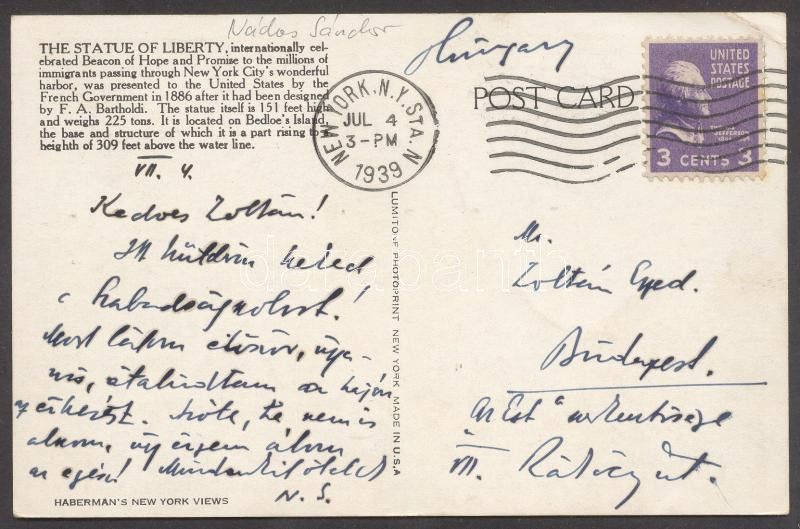 Nádas Sándor
THE STATUE OF LIBERTY, internationally cel-
ebrated Beacon of Hope and Promise to the millions of
immigrants passing through New York City's wonderful
harbor, was presented to the United States by the
French Government in 1886 after it had been designed
by F. A. Bartholdi. The statue itself is 151 feet high
and weighs 225 tons. It is located on Bedloe's Island,
the base and structure of which it is a part rising to a
heighth of 309 feet above the water line.
VII. 4.
Kedves Zoltán!
Itt küldöm neked
a szabadságszobrot!
Most látom először, ugya-
nis, átaludtam a hajón
az érkezést. Sőt, ha nem is
alszom, úgy érzem álom
az egész! Mindenkit ölel
N. S.
HABERMAN'S NEW YORK VIEWS
LUMITONE PHOTOPRINT NEW YORK MADE IN U.S.A
NEW YORK, N.Y. STA. N
JUL 4
3-PM
1939
Hungary
POST CARD
UNITED
STATES
POSTAGE
3 CENTS 3
Mr.
Zoltán Egyed.
Budapest.
Az Est szerkesztősége
VII. Rákóczi út.
darabanth